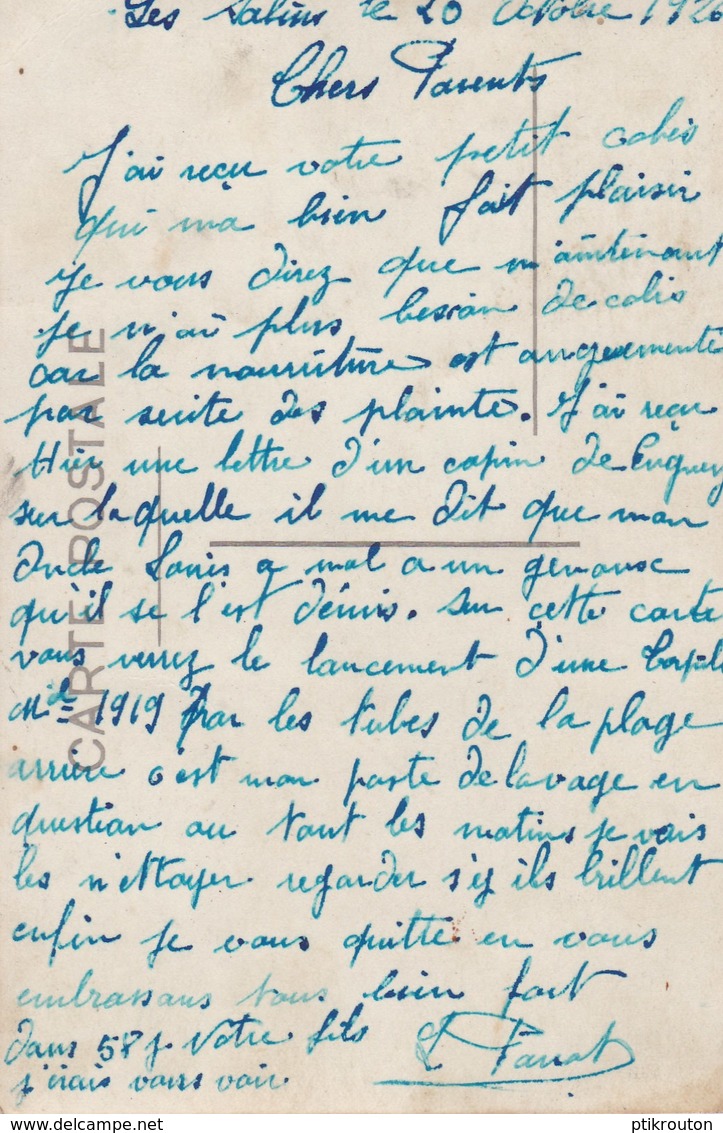 Les Salins le 20 Octobre 192
Chers Parents
J'ai reçu votre petit colis
qui ma bien fait plaisir
je vous direz que maintenant
je n'ai plus besoin de colis
car la nourriture est augementé
par suite des plainte. J'ai reçu
Hier une lettre d'un copin de
sur laquelle il me dit que mon
oncle Louis a mal a un genoux
qu'il se l'est démis. Sur cette carte
vous verrez le lancement d'une
Mle 1919 par les tubes de la plage
arrière c'est mon poste de lavage en
question ou tout les matins je vais
les n'ettoyer regarder s'y ils brillent
enfin je vous quitte en vous
embrassans tous bien fort
dans 58 j. Votre fils
j'irais vous voir
CARTE POSTALE
delcampe.net
ptikrouton